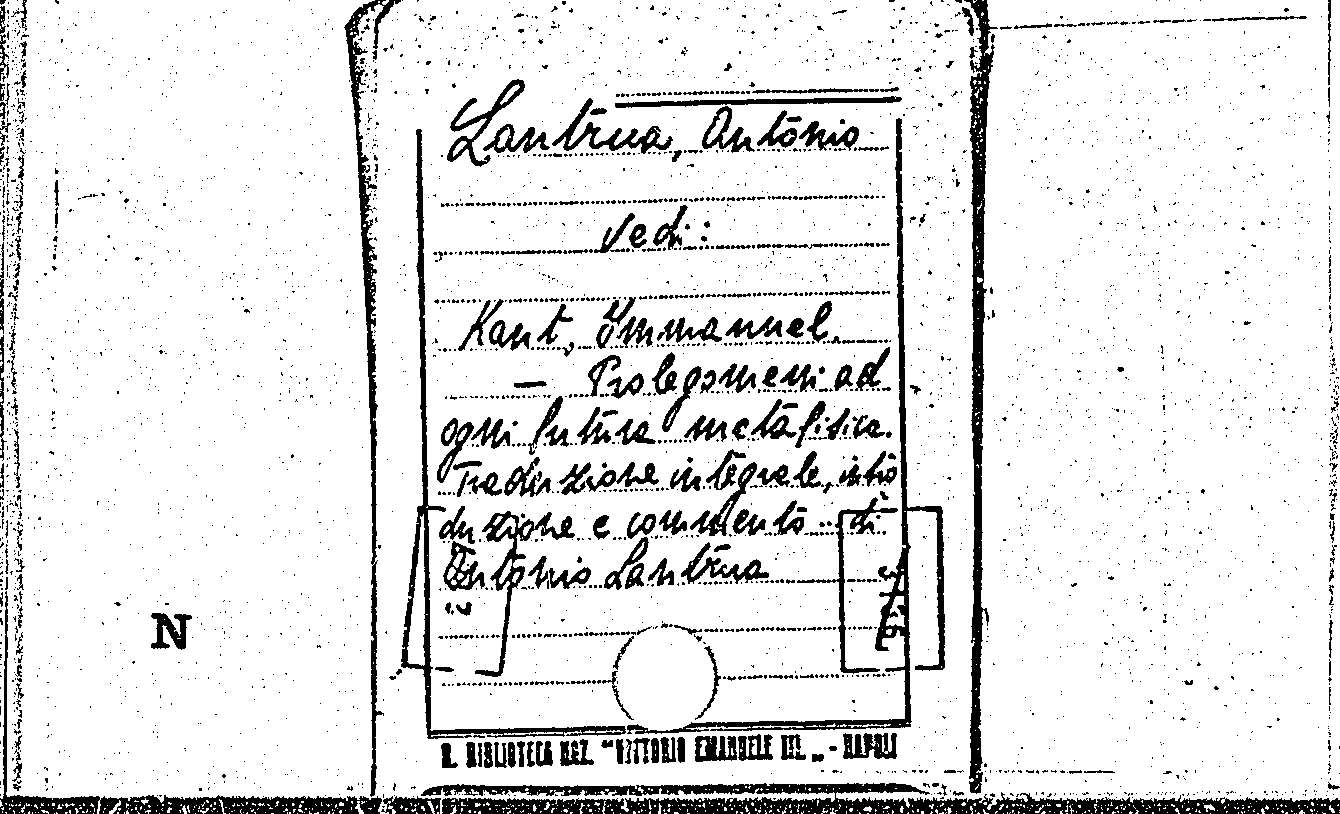 Lantrua, Antonio
vedi:
Kant, Immanuel.
— Prolegomeni ad
ogni futura metafisica.
Traduzione integrale, intro
duzione e commento .. di
Antonio Lantrua
N
R. BIBLIOTECA NAZ. "VITTORIO EMANUELE III. „ - NAPOLI